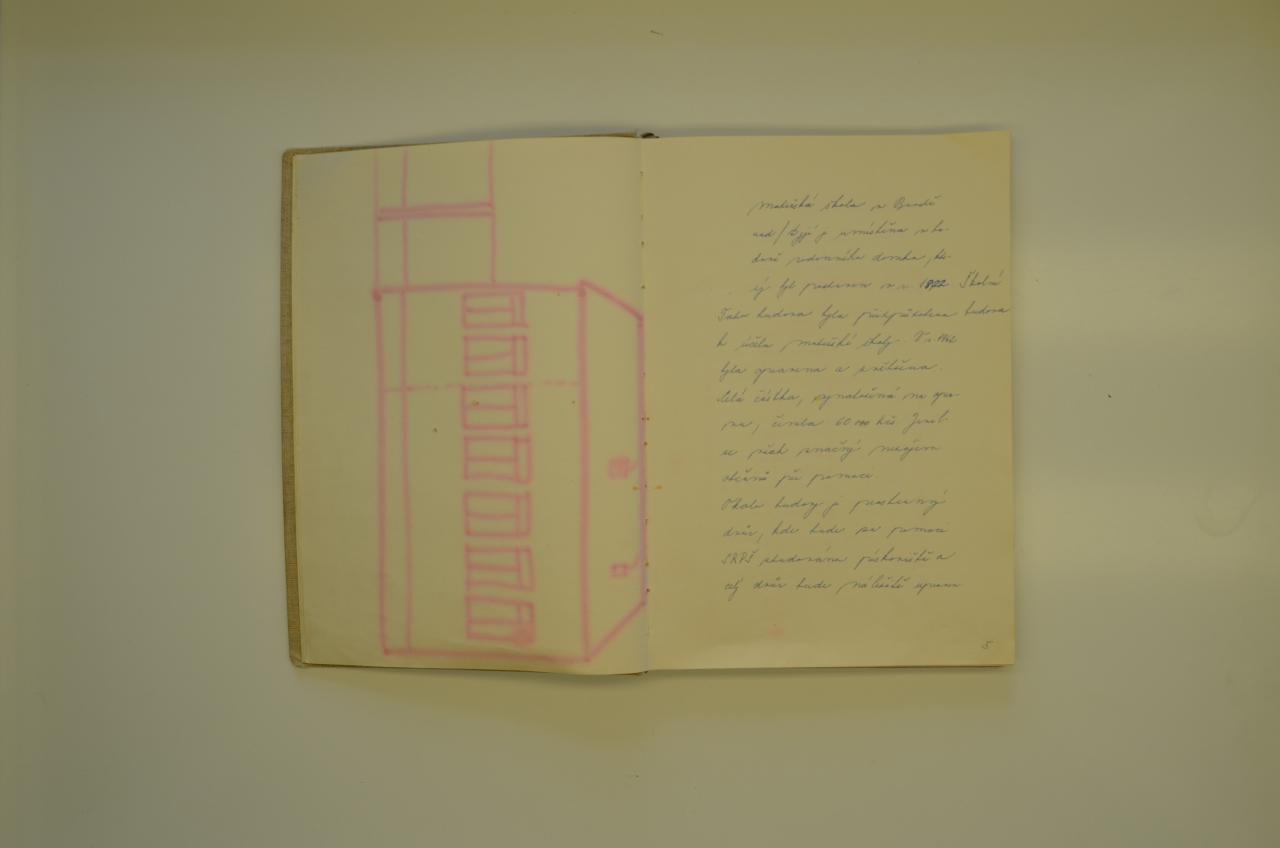 Mateřská škola v Brodě
nad/Dyjí je umístěna v bu-
dově rodinného domku, kte-
rý byl postaven v r. 1872 Školní
Tato budova byla přizpůsobena budova
k účelu mateřské školy. V r. 1962
byla opravena a zvětšena.
Celá částka, vynaložená na opra-
vu, činila 60 000 Kčs
se všech značný
občanů při pomoci.
Okolo budovy je prostranný
dvůr, kde bude za pomoci
SRPŠ vybudováno pískoviště a
celý dvůr bude náležitě upraven
5